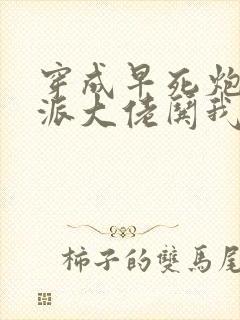 穿成早死炮
派大佬关我
柿子的雙馬尾